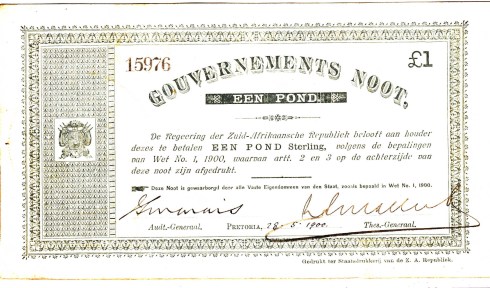 15976
£1
GOUVERNEMENTS NOOT,
EEN POND
De Regeering der Zuid-Afrikaansche Republiek belooft aan houder
dezes te betalen EEN POND Sterling, volgens de bepalingen
van Wet No. 1, 1900, waarvan artt. 2 en 3 op de achterzijde van
deze noot zijn afgedrukt.
Deze Noot is gewaarborgd door alle Vaste Eigendommen van den Staat, zooals bepaald in Wet No. 1, 1900.
Audt.-Generaal. Pretoria, 28-5-1900 Thes.-Generaal.
Gedrukt ter Staatsdrukkerij van de Z. A. Republiek.